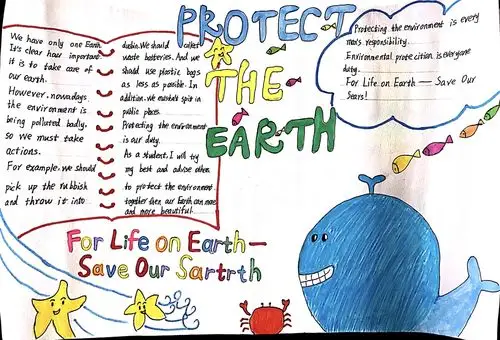 PROTECT
THE
EARTH
We have only one Earth
It's clear how important
it is to take care of
our earth.
However, nowadays
the environment is
being polluted badly,
so we must take
actions.
For example, we should
pick up the rubbish
and throw it into
dusbin. We should collect
waste batteries. And we
should use plastic bags
as less as possible. In
addition. We mustn't spit in
public places.
Protecting the environment
is our duty.
As a student, I will try
my best and advise others
to protect the environment
together then our Earth can more
and more beautiful.
Protecting the environment is every
man's responsibility.
Environmental protecition is everyone
duty.
For Life on Earth — Save Our
Sears!
For Life on Earth —
Save Our Sartrth